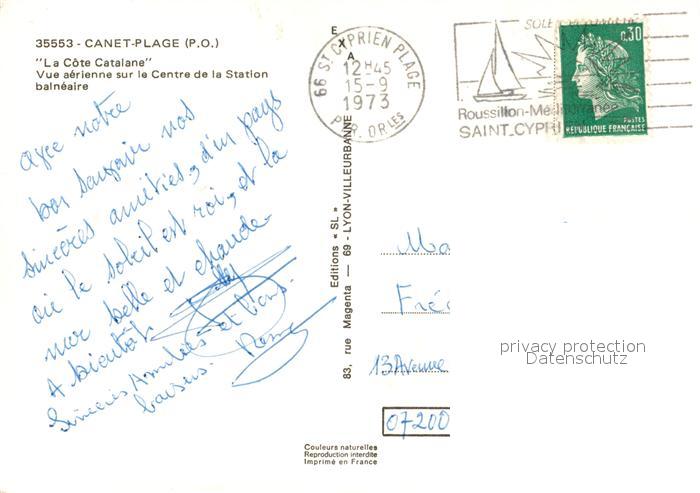 35553 - CANET-PLAGE (P.O.)
"La Côte Catalane"
Vue aérienne sur le Centre de la Station
balnéaire
avec notre
bon souvenir nos
sincères amitiés, d'un pays
où le soleil est roi, et la
mer belle et chaude.
A bientôt
Sincères Amitiés et bons
baisers.
EXA
83, rue Magenta — 69 - LYON-VILLEURBANNE
Editions « SL »
66 ST CYPRIEN PLAGE
12H45
15-9
1973
PYR. ORLES
SOLE
Roussillon-Méditerranée
SAINT.CYPRI
0,30
POSTES
REPUBLIQUE FRANÇAISE
Ma
Fréd
13 Avenue
07200
privacy protection
Datenschutz
Couleurs naturelles
Reproduction interdite
Imprimé en France